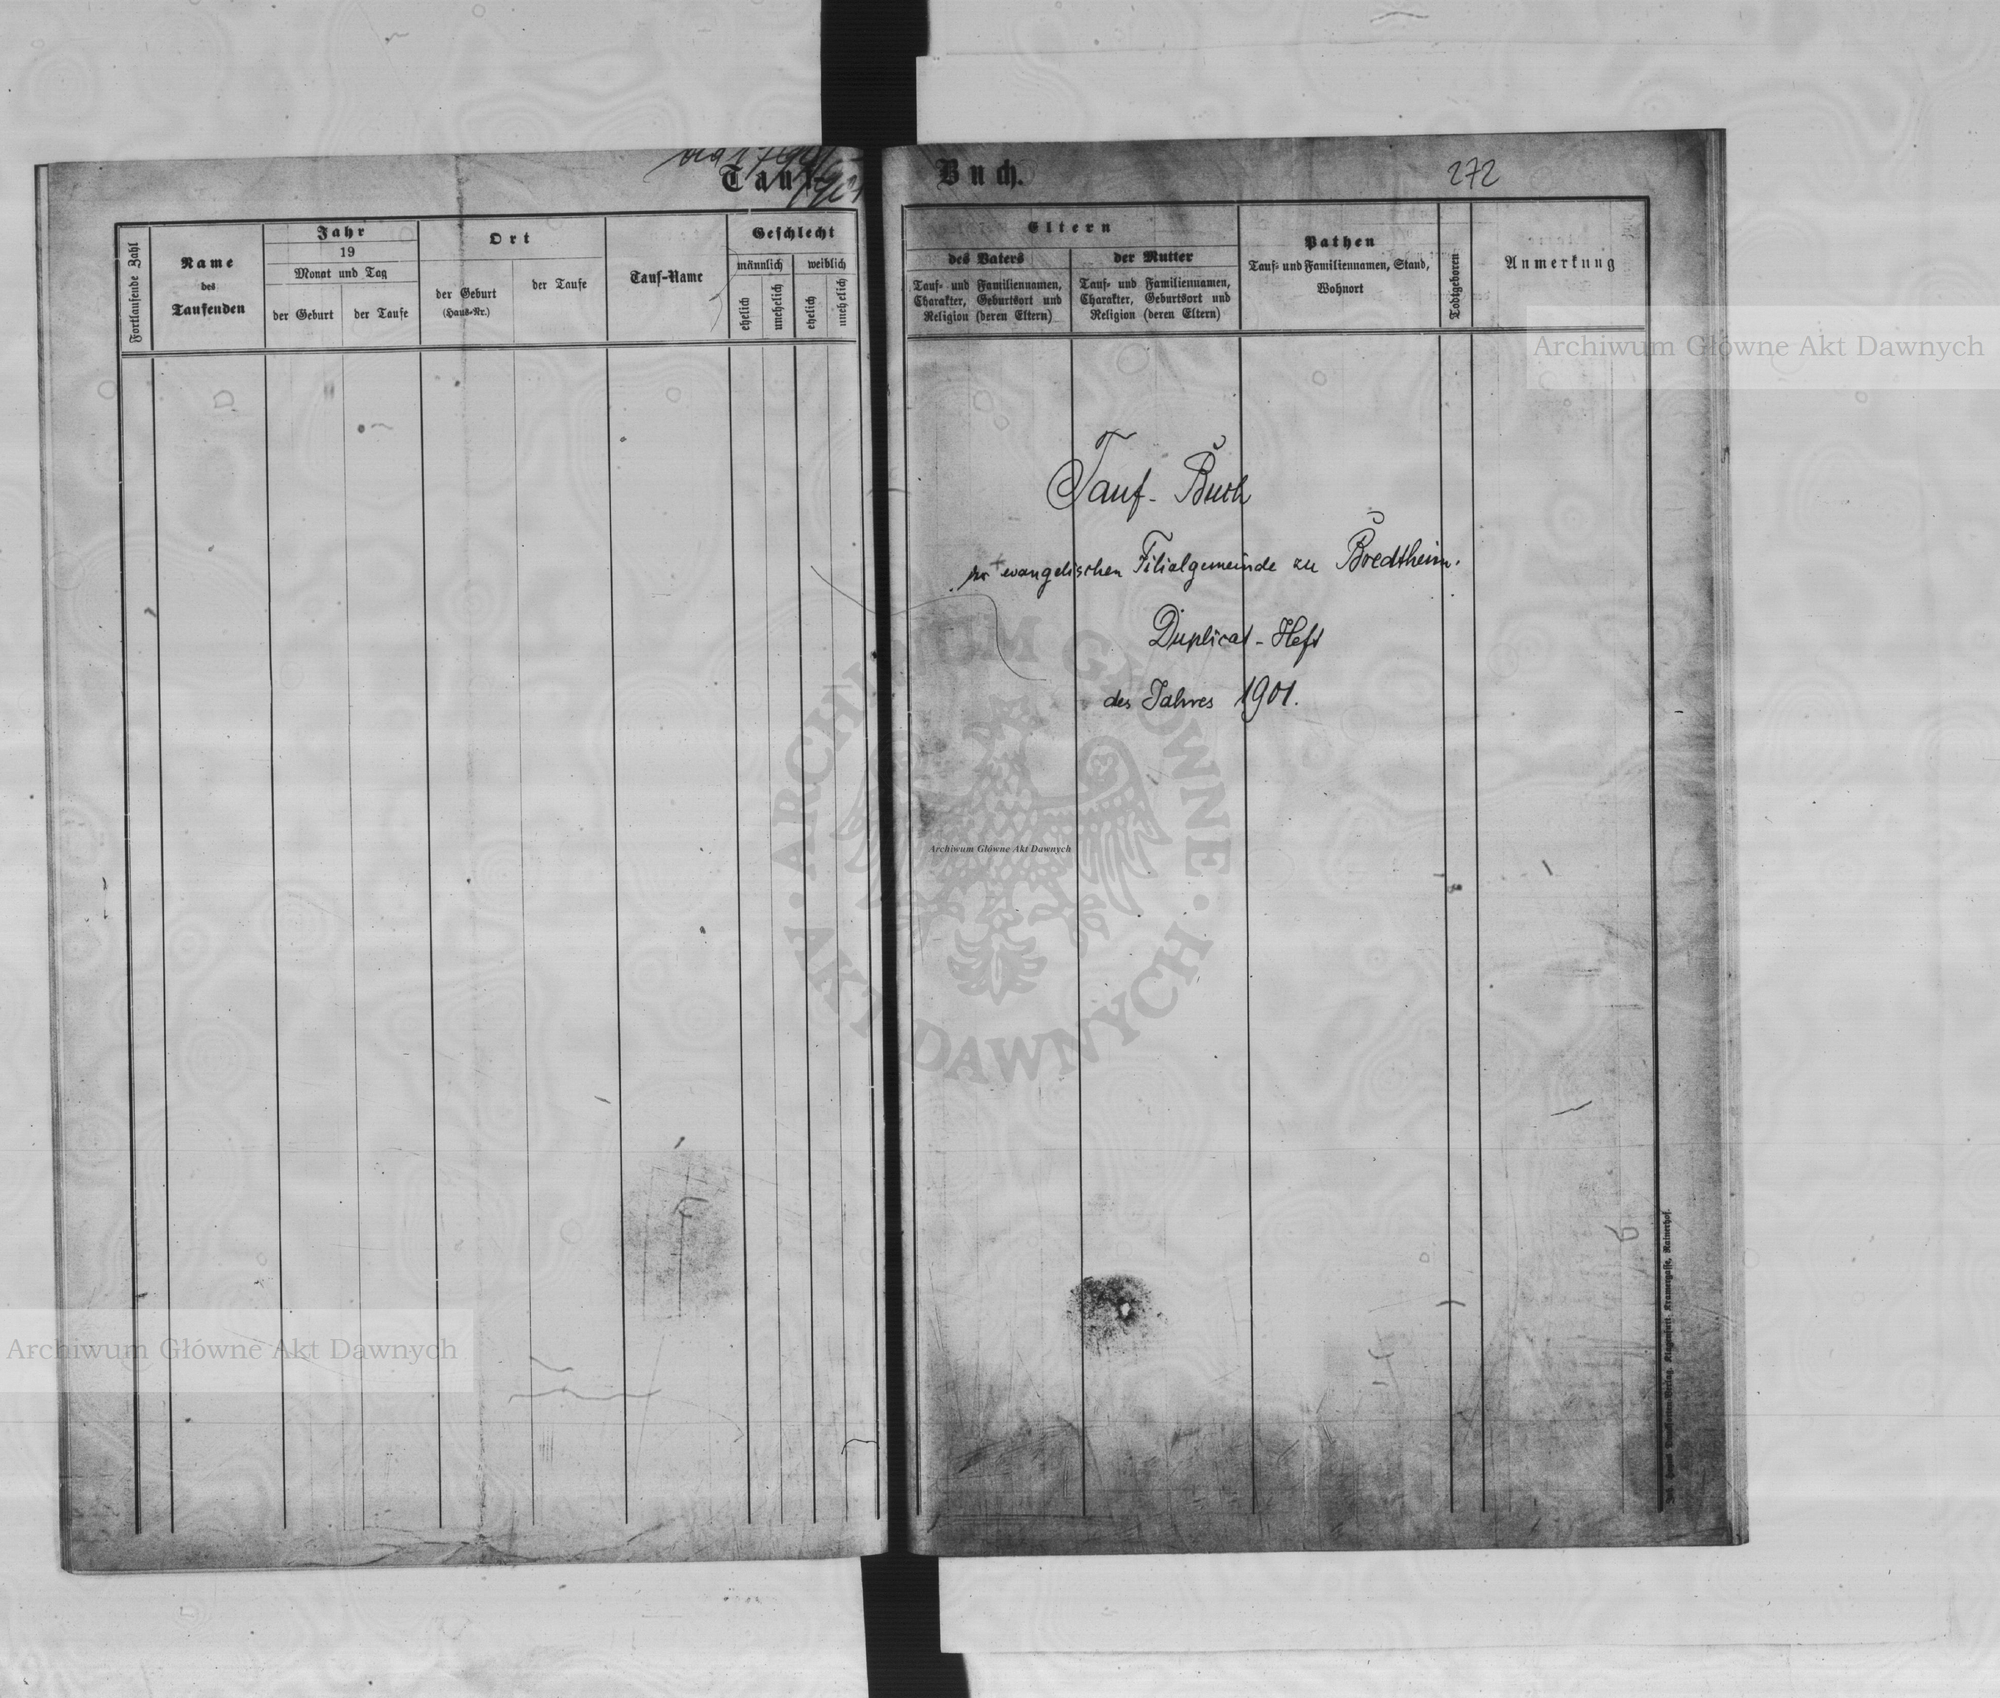 Tauf-
Buch.
272
Fortlaufende Zahl
Name
des
Taufenden
Jahr
19
Monat und Tag
der Geburt
der Taufe
Ort
der Geburt
(Haus-Nr.)
der Taufe
Tauf-Name
Geschlecht
männlich
weiblich
ehelich
unehelich
ehelich
unehelich
Eltern
des Vaters
Tauf- und Familiennamen,
Charakter, Geburtsort und
Religion (deren Eltern)
der Mutter
Tauf- und Familiennamen,
Charakter, Geburtsort und
Religion (deren Eltern)
Pathen
Tauf- und Familiennamen, Stand,
Wohnort
Todtgeboren
Anmerkung
Tauf-Buch
der evangelischen Filialgemeinde zu Bredtheim.
Duplicat-Heft
des Jahres 1901.
Archiwum Główne Akt Dawnych
Archiwum Główne Akt Dawnych
Archiwum Główne Akt Dawnych
ARCHIWUM GŁÓWNE
AKT DAWNYCH
Verlag, Klagenfurt, Kramergasse, Rainerhof.